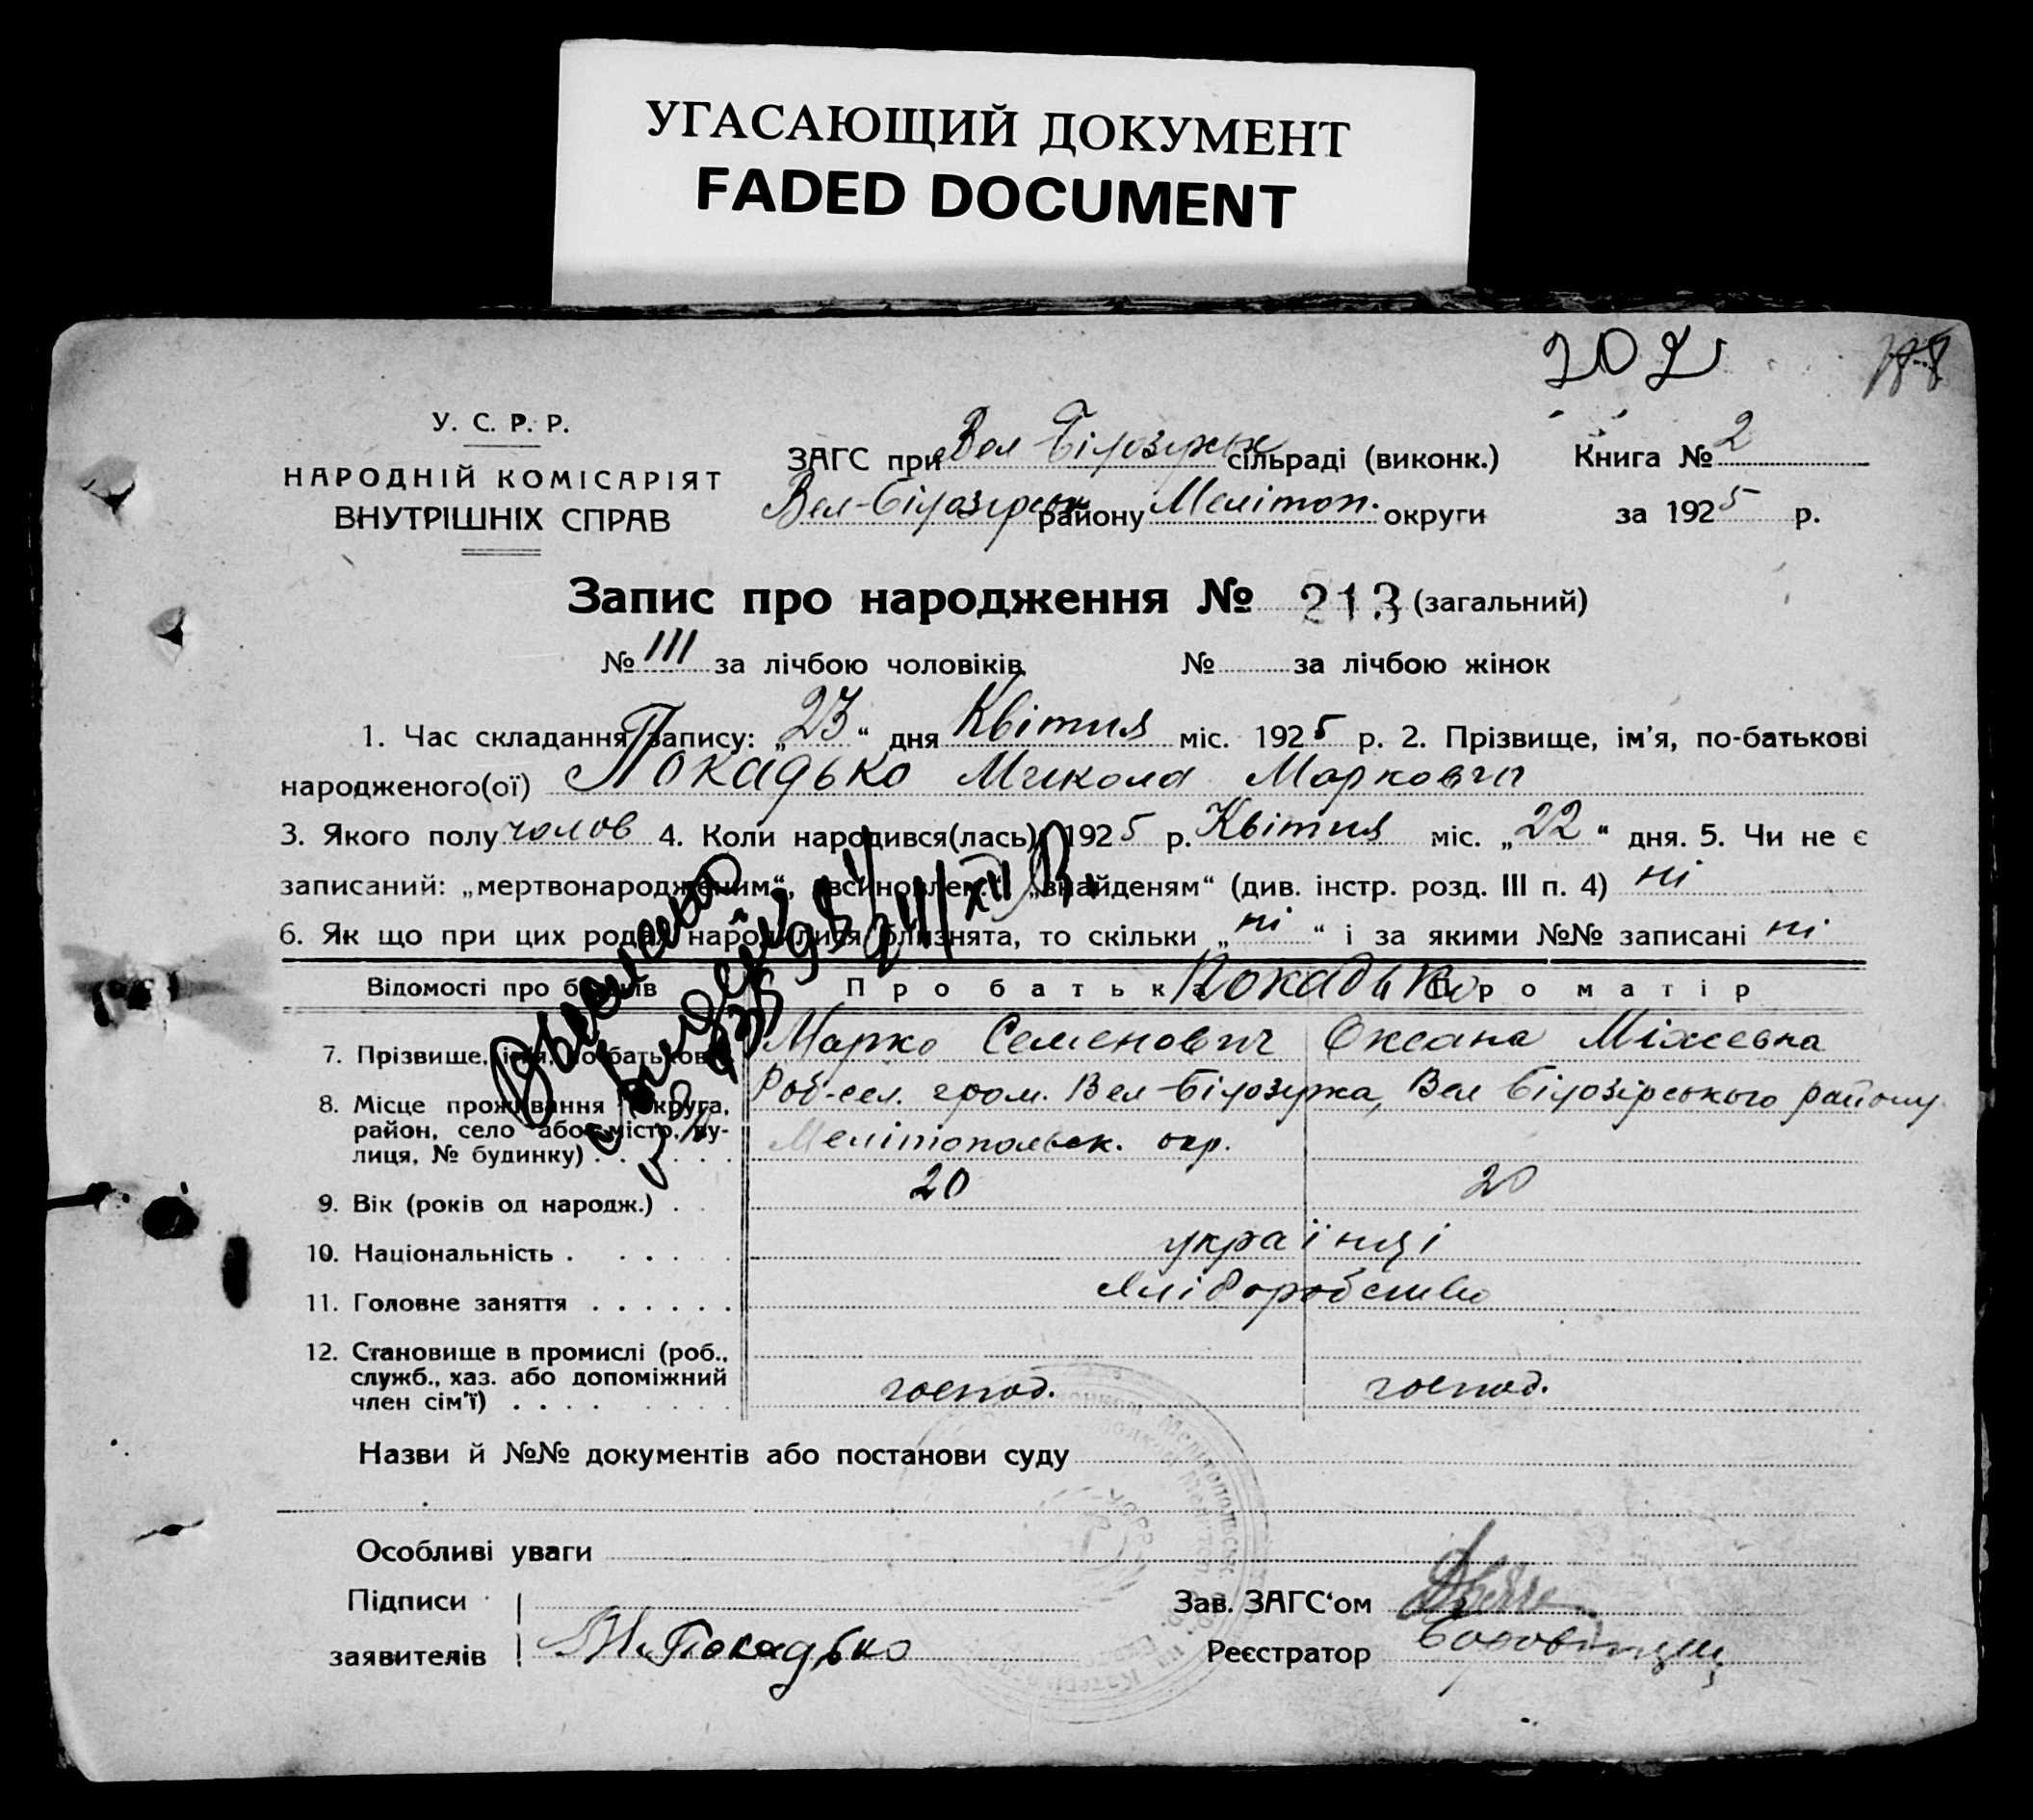 УГАСАЮЩИЙ ДОКУМЕНТ
FADED DOCUMENT
202
У. С. Р. Р.
НАРОДНІЙ КОМІСАРІЯТ
ВНУТРІШНІХ СПРАВ
ЗАГС при Вел Білозірськ сільраді (виконк.)
Вел-Білозірськ району Мелітоп. округи
Книга № 2
за 1925 р.
Запис про народження № 213 (загальний)
№ 111 за лічбою чоловіків № за лічбою жінок
1. Час складання запису: „23“ дня Квітня міс. 1925 р. 2. Прізвище, ім’я, по-батькові
народженого(ої) Покадько Микола Маркович
3. Якого полу чолов 4. Коли народився(лась) 1925 р. Квітня міс. „22“ дня. 5. Чи не є
записаний: „мертвонародженим“, „всиновлен“, „знайденям“ (див. інстр. розд. III п. 4) ні
6. Як що при цих родах народилися близнята, то скільки „ні“ і за якими №№ записані ні
Відомості про батьків Про батька Про матір
Покадько
7. Прізвище, ім’я, по батькові Марко Семенович Оксана Міхеевна
8. Місце проживання (округа, район, село або місто, ву-
лиця, № будинку) . . . . . . Роб-сел. гром. Вел Білозірка, Вел Білозірського району
Мелітопольск. окр.
9. Вік (років од народж.) . . 20 20
10. Національність . . . . українці
11. Головне заняття . . . . . . хліборобство
12. Становище в промислі (роб.,
служб., хаз. або допоміжний
член сім’ї) . . . . господ. господ.
Назви й №№ документів або постанови суду
Особливі уваги
Підписи
заявителів М. Покадько
Зав. ЗАГС‘ом
Реєстратор